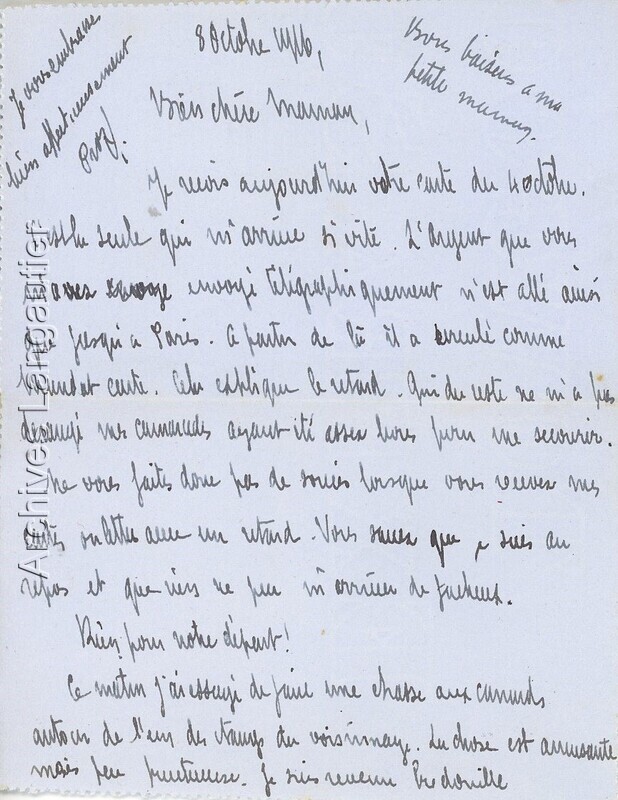 8 Octobre 1916,
Bien chère Maman,
Je reçois aujourd'hui votre carte du 4 octobre.
est la seule qui m'arrive si vite. L'argent que vous
avez envoyé télégraphiquement n'est allé ainsi
que jusqu'à Paris. A partir de là il a circulé comme
mandat carte. Cela explique le retard. Qui du reste ne m'a pas
dérangé mes camarades ayant été assez bons pour me secourir.
Ne vous faites donc pas de soucis lorsque vous recevez mes
cartes ou lettres avec un retard. Vous savez que je suis au
repos et que rien ne peu m'arriver de facheux.
Rien pour notre départ!
Ce matin j'ai essayé de faire une chasse aux canards
autour de l'un des étangs du voisinage. La chose est amusante
mais peu fructueuse. Je suis revenu bredouille
Je vous embrasse
bien affectueusement
Bons baisers a ma
petite maman.
Archives Langautier